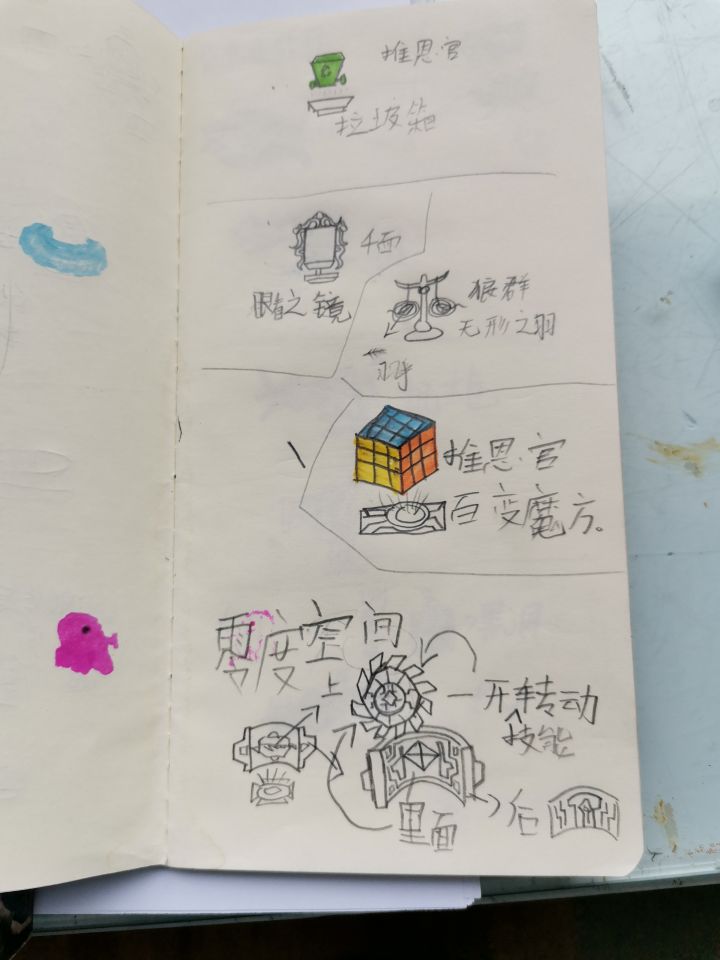 推恩官
垃圾箱
千面
眼睛之镜
狼群
无形之羽
羽毛
推恩官
百变魔方。
零度空间
上
一开转动
技能
里面
后